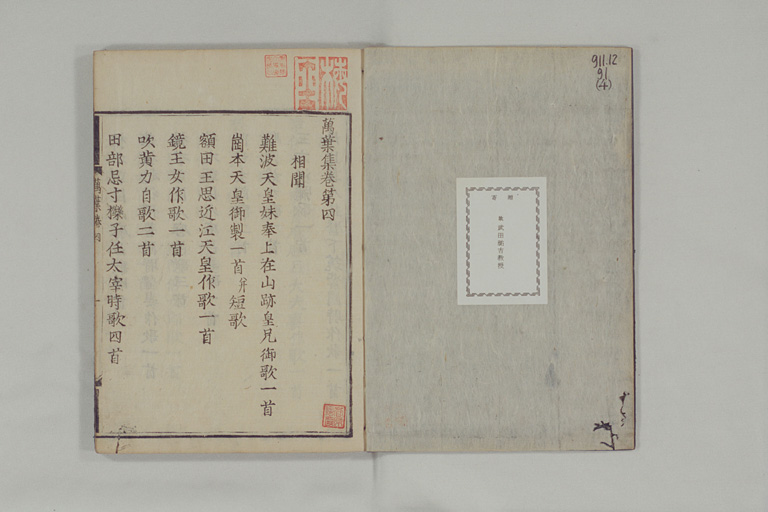 911.12
91
(4)
寄贈
故 武田祐吉教授
萬葉集巻第四
相聞
難波天皇妹奉上在山跡皇兄御歌一首
崗本天皇御製一首并短歌
額田王思近江天皇作歌一首
鏡王女作歌一首
吹黄刀自歌二首
田部忌寸櫟子任太宰時歌四首
萬葉巻四